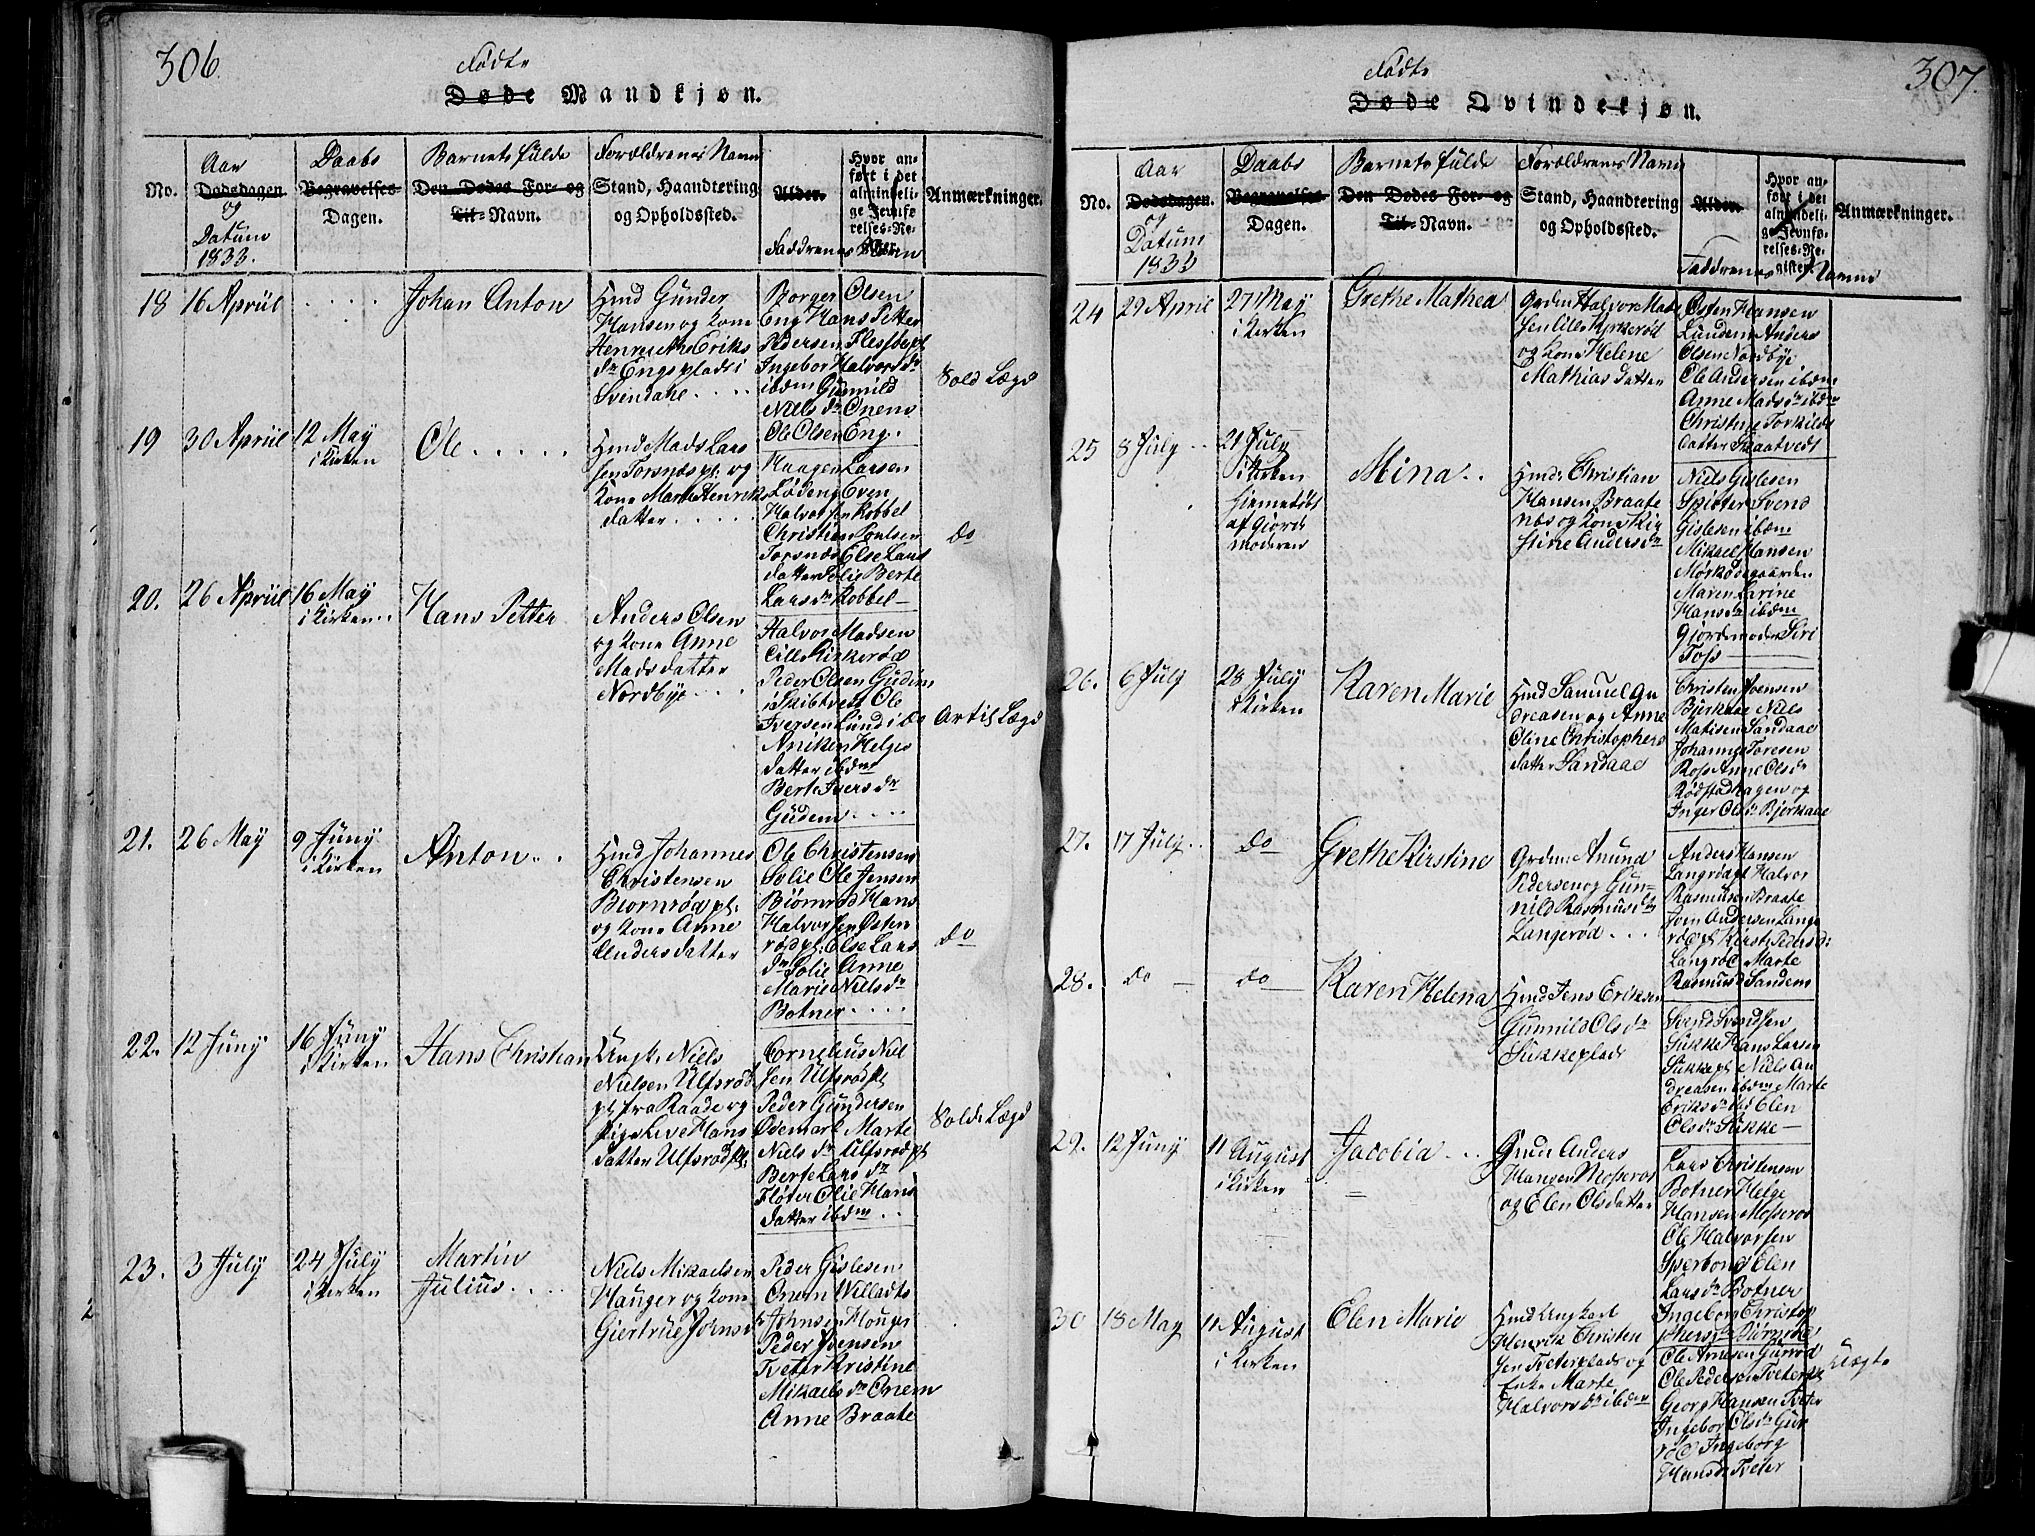 306.
Fødte
Døde Mandkjøn.
No.
Aar
Dødsdagen
og
Datum
1833.
Daabs
Begravelses-
Dagen.
Barnets fulde
Den Dødes For- og
Til-Navn.
Forældrenes Navn
Stand, Haandtering
og Opholdssted.
Alder.
Hvor an-
ført i det
almindeli-
ge Jevnfø-
relses-Re-
gister.
Faddrenes Navn
Anmærkninger.
18
16 Apriil
Johan Anton
Hmd Gunder
Hansen og Kone
Henriethe Eriks
dr Engsplads i
Svendahl
Borger Olsen
Eng Hans Petter
Pedersen Flesjøpl
Ingebor Halvorsdr
ibdm Gunnild
Nielsdr Onem
Ole Olsen Eng.
Sold Lægd
19
30 Apriil
12 May
i Kirken
Ole
Hmd Mads Lars
sen Torsnæspl. og
Kone Marte Henriks
datter
Haagen Larsen
Lødeng Even
Halvorsen Kobbel
Christian Poulsen
Torsnæs Else Lars
datter Solie Berte
Larsdr Kobbel
do
20.
26 Apriil
16 May
i Kirken
Hans Petter
Anders Olsen
og Kone Anne
Madsdatter
Nordbye
Halvor Madsen
Lille Kirkerød
Peder Olsen Gudim
i Skibtvett Ole
Iversen Lund i do
Aniken Helges
datter ibdm
Berte Iversdr
Gudem
Artil Lægd
21.
26 May
9 Juny
i Kirken
Anton
Hmd Johannes
Christensen
Biornrød pl.
og Kone Anne
Andersdatter
Ole Christensen
Solie Ole Jensen
Biørnrød Hans
Halvorsen Østen
rød pl. Else Lars
dr Solie Anne
Marie Nielsdr
Botner
do
22.
12 Juny
16 Juny
i Kirken
Hans Christian
Ungk. Niels
Nielsen Ulfsrød
pl. fra Raade og
Pige Live Hans
datter Ulfsrødpl.
Cornelius Niel
sen Ulfsrødpl
Peder Gundersen
Ødemark Marte
Nielsdr Ulfsrødpl
Berte Larsdr
Fløter Olie Hans
datter ibdm
Solde Lægd
23.
3 July
24 July
i Kirken
Martin
Julius
Niels Mikaelsen
Hauger og Kone
Giertrue Johnsd
Peder Gislesen
Onem Willads
Johnsen Houger
Peder Svensen
Tveter Kristine
Mikaelsdr Onem
Anne Braate
307.
Fødte
Døde Qvindekjøn.
No.
Aar
Dødsdagen.
og
Datum
1833
Daabs
Begravelses-
Dagen.
Barnets fulde
Den Dødes For- og
Til-Navn.
Forældrenes Navn
Stand, Haandtering
og Opholdssted.
Alder.
Hvor an-
ført i det
almindeli-
ge Jevnfø-
relses-Re-
gister.
Faddrenes Navne
Anmærkninger.
24
29 April
27 May
i Kirken
Grethe Mathea
Grdm Halvor Mad
sen Lille Kirkerød
og Kone Helene
Mathiasdatter
Østen Hansen
Lundem Anders
Olsen Nordbye
Ole Andersen ibdm
Anne Madsdr ibdm
Christine Torkilds
datter Skaatvedt
25
8 July
21 July
i Kirken
hiemmedøbt
af Giorde
moderen
Mina
Hmd. Christian
Hansen Braate
næs og Kone Kir
stine Andersdr
Niels Gislesen
Spitter Svend
Gislesen ibdm
Mikael Hansen
Mørkødegaarden
Maren Larine
Hansdr ibdm
Gjordemoder Siri
Foss
26.
6 July
28 July
i Kirken
Karen Marie
Hmd Samuel An
dreasen og Anne
Oline Christophers
datter Sandaae
Christen Svensen
Biørkaae Niels
Matisen Sandaae
Johannes Toresen
Ross Anne Olsdr
Rødstadhagen og
Inger Olsdr Bjørkaae
27.
17 July
do
Grethe Kirstine
Grdm. Amund
Pedersen og Gun-
nild Rasmusdtr
Langerød
Anders Hansen
Langrød pl Halvor
Rasmusen Braate
Joen Andersen Lange
rød pl Kirsti Pedersd:
Langrød Marte
Rasmusd Sandem
28.
do
do
Karen Helena
Hmd Jens Eriksen
Gunnild Olsdr
Sikkeplads
Svend Svendsen
Sikke Hans Larsen
Sikkepl Niels An
dreasen ibdm Marte
Eriksdr ibd Elen
Olsdr Sikke
29.
12 Juny
11 August
i Kirken
Jacobia
Grmd Anders
Hansen Mosserød
og Elen Olsdatter
Lars Christensen
Botner Helge
Hansen Mosserød
Ole Halvorsen
Sperbond Elen
Larsdr Botner
Ingeborg Christop
hersdr Biørnrød
30
18 May
11 August
i Kirken
Elen Marie
Hmd Ungkarl
Henrik Christen
sen Tveterplads og
Enke Marte
Halvorsdr ibdm
Ole Arnesen Gurrød
Ole Pedersen Tveterpl
Georg Hansen Tveter
Ingebor Olsdr Gur
rød Ingeborg
Hansdr Tveter
Uægte